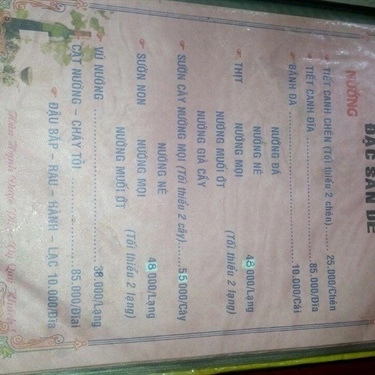 ĐẶC SẢN DÊ
NƯỚNG
TIẾT CANH CHIÊN (Tối thiểu 2 chén) 25.000/Chén
TIẾT CANH DĨA 85.000/Dĩa
BÁNH ĐA 10.000/Cái
NƯỚNG ĐÁ
NƯỚNG NÊ
THỊT NƯỚNG MỌI 48.000/Lạng
NƯỚNG MUỐI ỚT (Tối thiểu 2 lạng)
NƯỚNG GIẢ CẦY
SƯỜN CÂY NƯỚNG MỌI (Tối thiểu 2 cây) 55.000/Cây
NƯỚNG NÊ
SƯỜN NON NƯỚNG MỌI 48.000/Lạng
NƯỚNG MUỐI ỚT (Tối thiểu 2 lạng)
VÚ NƯỚNG 38.000/Lạng
CẬT NƯỚNG - CHÁY TỎI 85.000/Dĩa
ĐẬU BẮP - RAU - HÀNH - LẠC 10.000/Dĩa
Hân Hạnh Được Phục Vụ Quý Khách